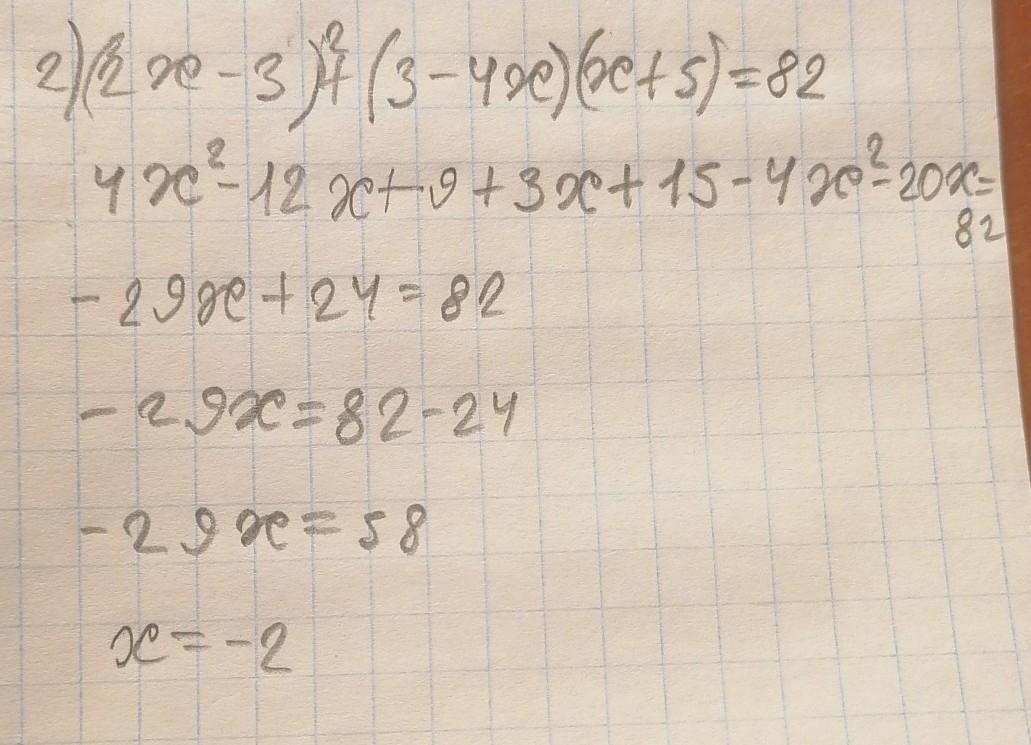 2) (2x - 3)² + (3 - 4x)(x + 5) = 82
4x² - 12x + 9 + 3x + 15 - 4x² - 20x =
82
- 29x + 24 = 82
- 29x = 82 - 24
- 29x = 58
x = - 2